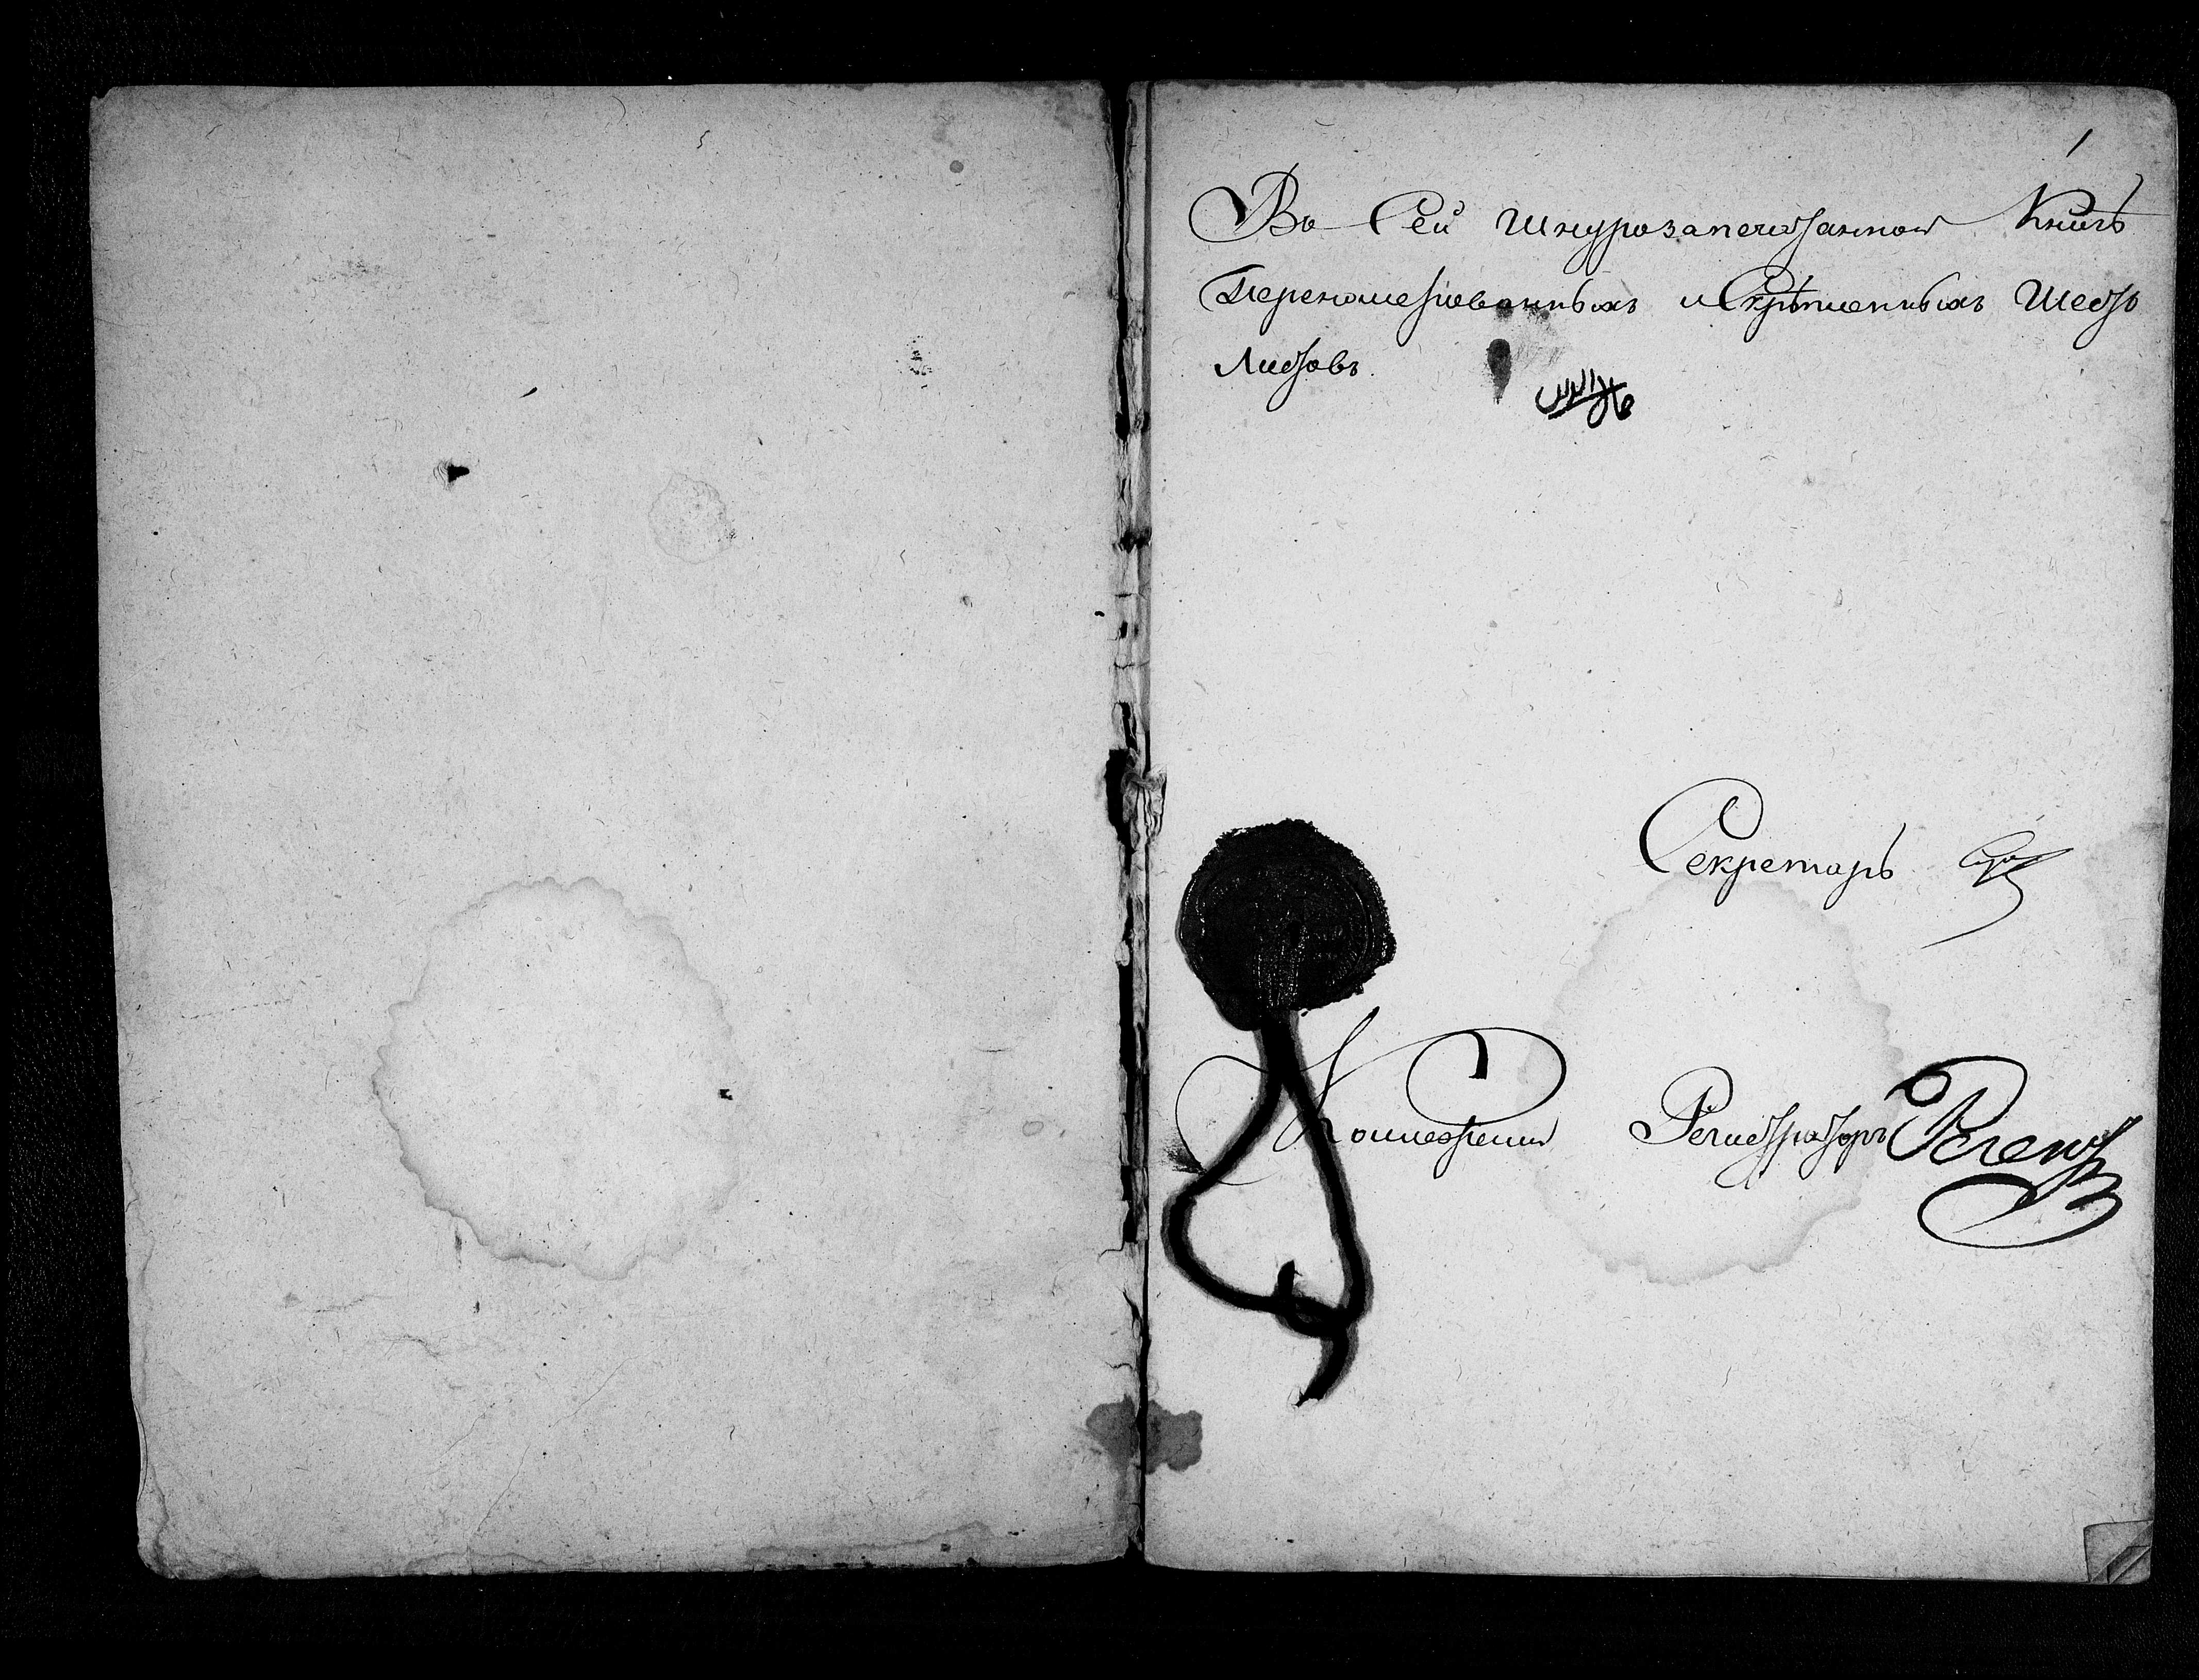 1
Во Сей шнурозапечатанной Книгѣ
перенумерованныхъ и Скрѣпленныхъ шесть
Листовъ.
Секретарь
Коллежский Регистраторъ